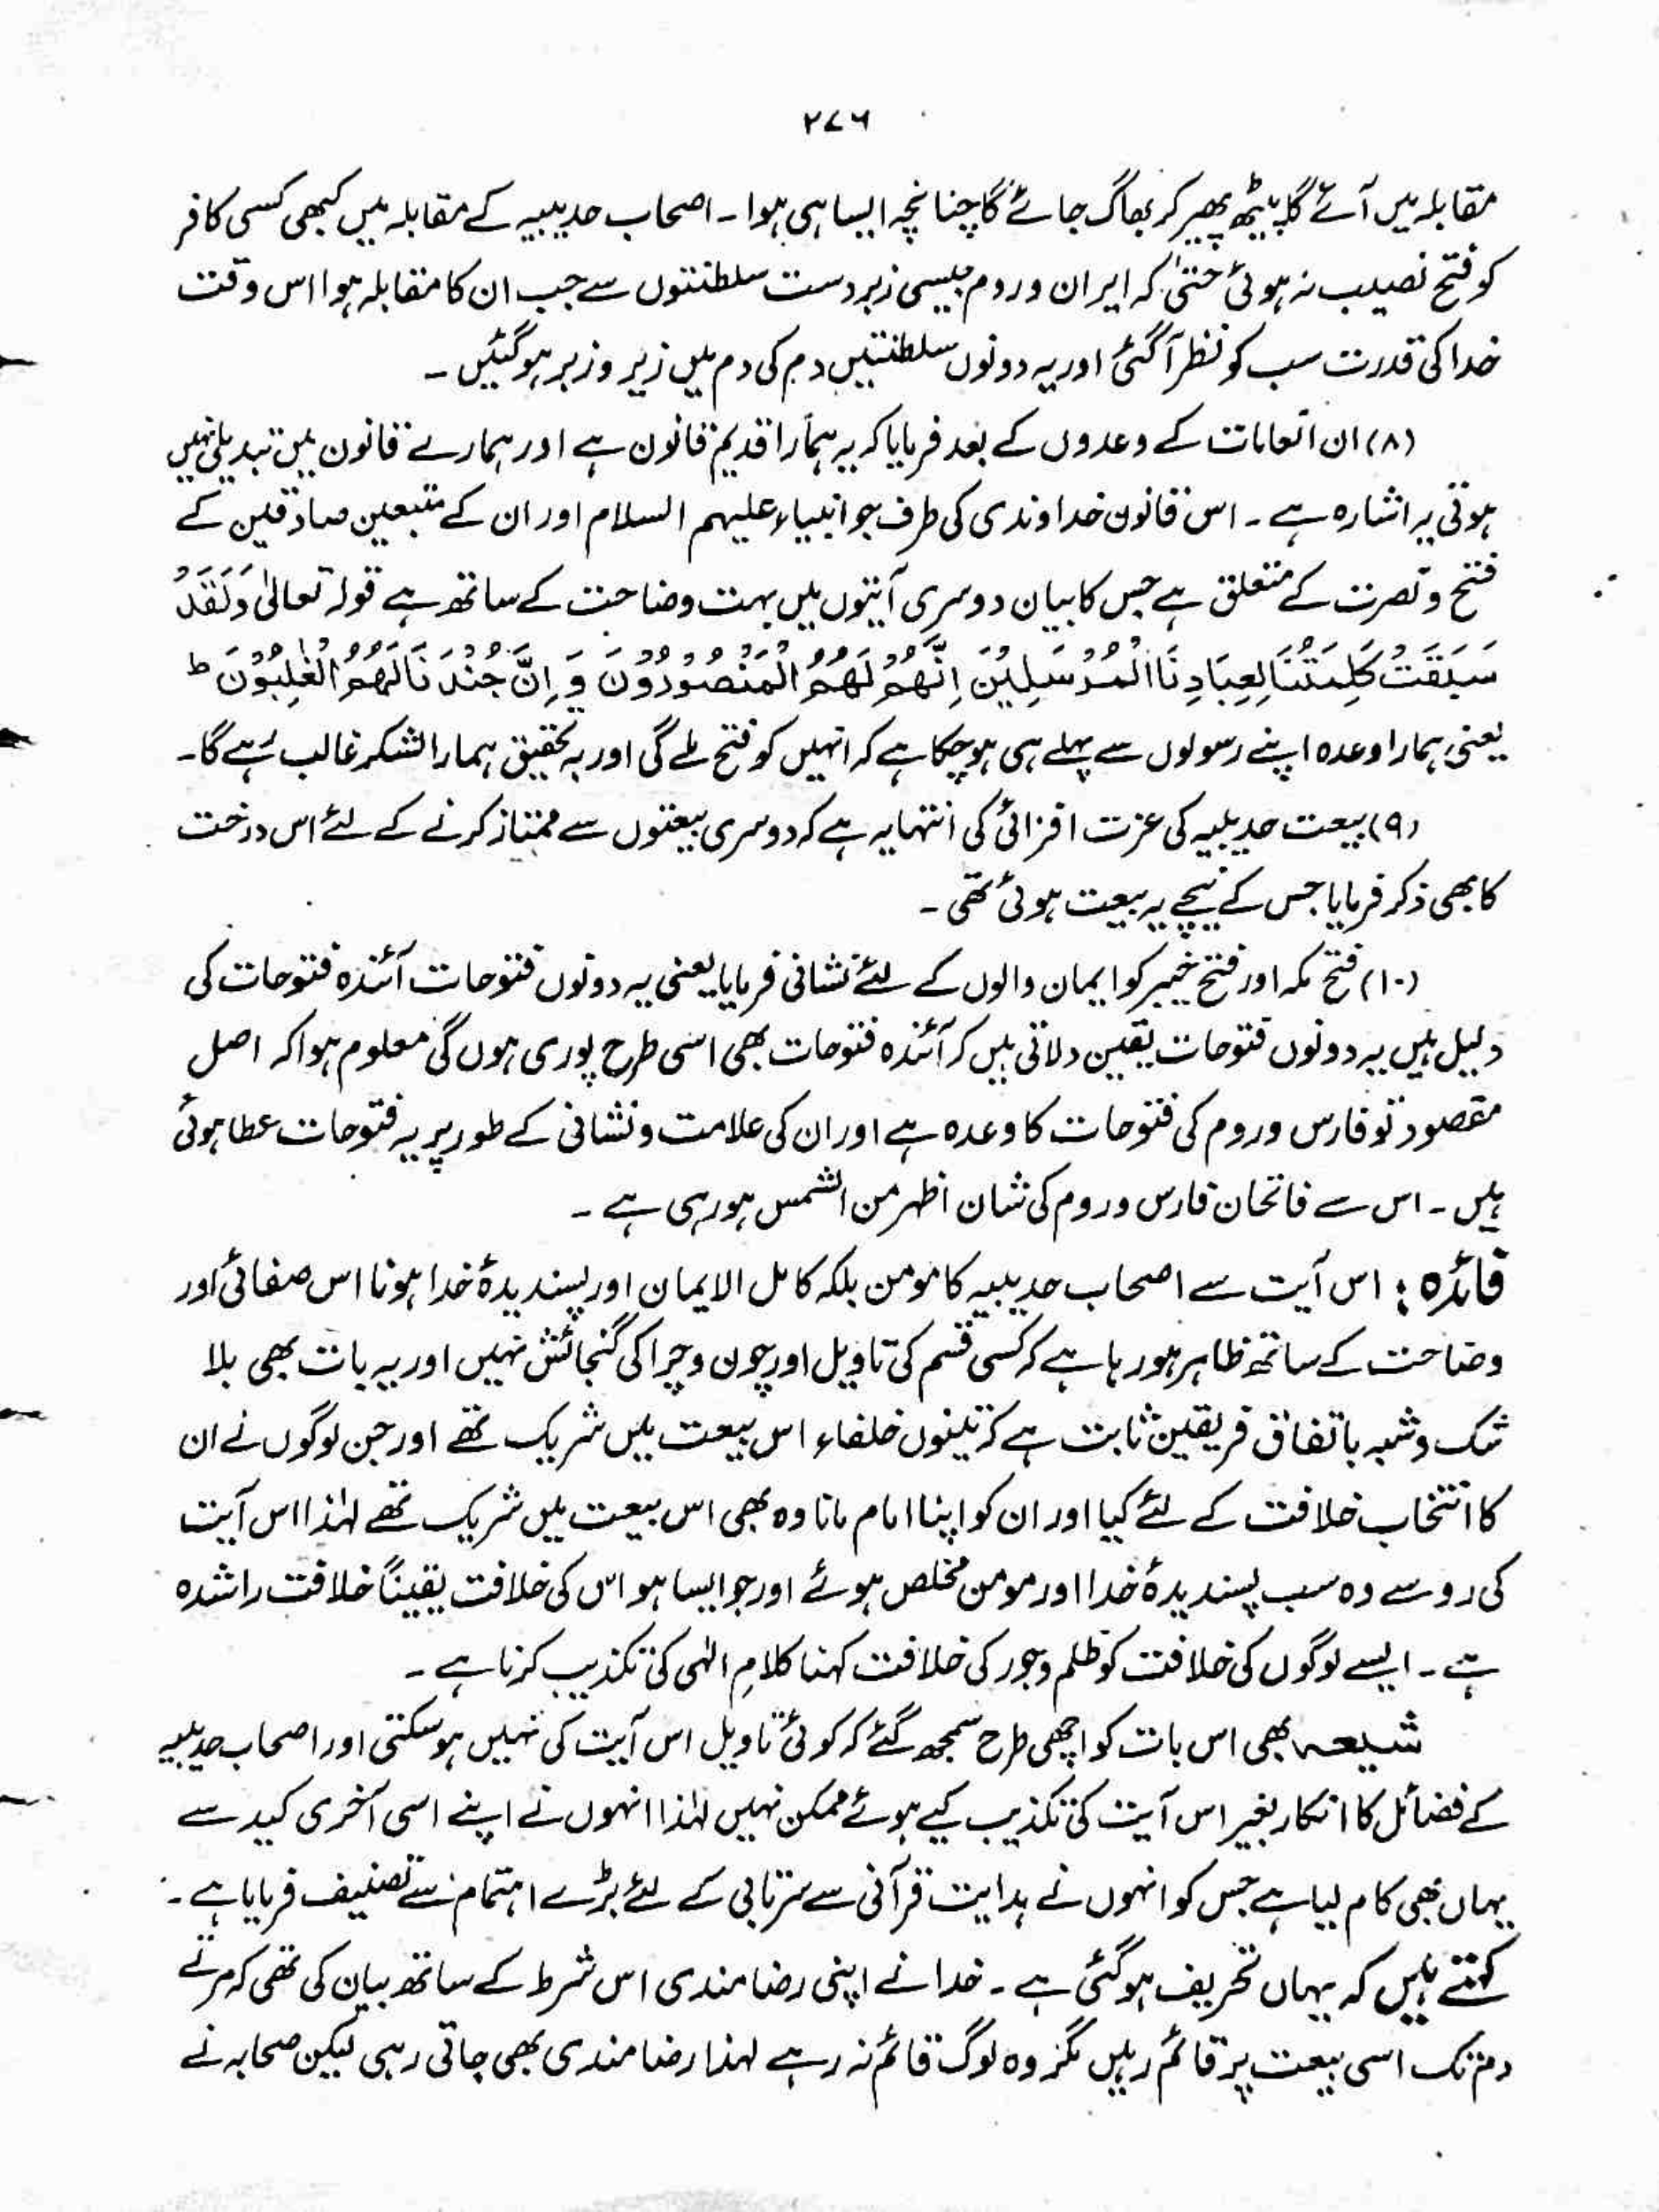 ۲۷۶
مقابلہ میں آئے گا پیٹھ پھیر کر بھاگ جائے گا چنانچہ ایسا ہی ہوا ۔ اصحاب حدیبیہ کے مقابلہ میں کبھی کسی کافر
کو فتح نصیب نہ ہوئی حتیٰ کہ ایران و روم جیسی زبردست سلطنتوں سے جب ان کا مقابلہ ہوا اس وقت
خدا کی قدرت سب کو نظر آگئی اور یہ دونوں سلطنتیں دم کی دم میں زیر و زبر ہو گئیں ۔
(۸) ان انعامات کے وعدوں کے بعد فرمایا کہ یہ ہمارا قدیم قانون ہے اور ہمارے قانون میں تبدیلی نہیں
ہوتی یہ اشارہ ہے ۔ اس قانون خداوندی کی طرف جو انبیاء علیہم السلام اور ان کے متبعین صادقین کے
فتح و نصرت کے متعلق ہے جس کا بیان دوسری آیتوں میں بہت وضاحت کے ساتھ ہے قولہ تعالیٰ وَلَقَدْ
سَبَقَتْ كَلِمَتُنَا لِعِبَادِنَا الْمُرْسَلِيْنَ اِنَّهُمْ لَهُمُ الْمَنْصُوْرُوْنَ وَ اِنَّ جُنْدَنَا لَهُمُ الْغٰلِبُوْنَ ط
یعنی ہمارا وعدہ اپنے رسولوں سے پہلے ہی ہو چکا ہے کہ انہیں کو فتح ملے گی اور بہ تحقیق ہمارا لشکر غالب رہے گا۔
(۹) بیعت حدیبیہ کی عزت افزائی کی انتہا یہ ہے کہ دوسری بیعتوں سے ممتاز کرنے کے لئے اس درخت
کا بھی ذکر فرمایا جس کے نیچے یہ بیعت ہوئی تھی ۔
(۱۰) فتح مکہ اور فتح خیبر کو ایمان والوں کے لئے نشانی فرمایا یعنی یہ دونوں فتوحات آئندہ فتوحات کی
دلیل ہیں یہ دونوں فتوحات یقین دلاتی ہیں کہ آئندہ فتوحات بھی اسی طرح پوری ہوں گی معلوم ہوا کہ اصل
مقصود تو فارس و روم کی فتوحات کا وعدہ ہے اور ان کی علامت و نشانی کے طور پر یہ فتوحات عطا ہوئی
ہیں ۔ اس سے فاتحان فارس و روم کی شان اظہر من الشمس ہو رہی ہے ۔
فائدہ : اس آیت سے اصحاب حدیبیہ کا مومن بلکہ کامل الایمان اور پسندیدۂ خدا ہونا اس صفائی اور
وضاحت کے ساتھ ظاہر ہو رہا ہے کہ کسی قسم کی تاویل اور چون و چرا کی گنجائش نہیں اور یہ بات بھی بلا
شک و شبہ باتفاق فریقین ثابت ہے کہ تینوں خلفاء اس بیعت میں شریک تھے اور جن لوگوں نے ان
کا انتخاب خلافت کے لئے کیا اور ان کو اپنا امام مانا وہ بھی اس بیعت میں شریک تھے لہٰذا اس آیت
کی رو سے وہ سب پسندیدۂ خدا اور مومن مخلص ہوئے اور جو ایسا ہو اس کی خلافت یقیناً خلافت راشدہ
ہے ۔ ایسے لوگوں کی خلافت کو ظلم و جور کی خلافت کہنا کلامِ الٰہی کی تکذیب کرنا ہے ۔
شیعہ بھی اس بات کو اچھی طرح سمجھ گئے کہ کوئی تاویل اس آیت کی نہیں ہو سکتی اور اصحاب حدیبیہ
کے فضائل کا انکار بغیر اس آیت کی تکذیب کیے ہوئے ممکن نہیں لہٰذا انہوں نے اپنے اسی آخری کید سے
یہاں بھی کام لیا ہے جس کو انہوں نے ہدایت قرآنی سے سرتابی کے لئے بڑے اہتمام سے تصنیف فرمایا ہے ۔
کہتے ہیں کہ یہاں تحریف ہو گئی ہے ۔ خدا نے اپنی رضامندی اس شرط کے ساتھ بیان کی تھی کہ مرتے
دم تک اسی بیعت پر قائم رہیں مگر وہ لوگ قائم نہ رہے لہذا رضامندی بھی جاتی رہی لیکن صحابہ نے